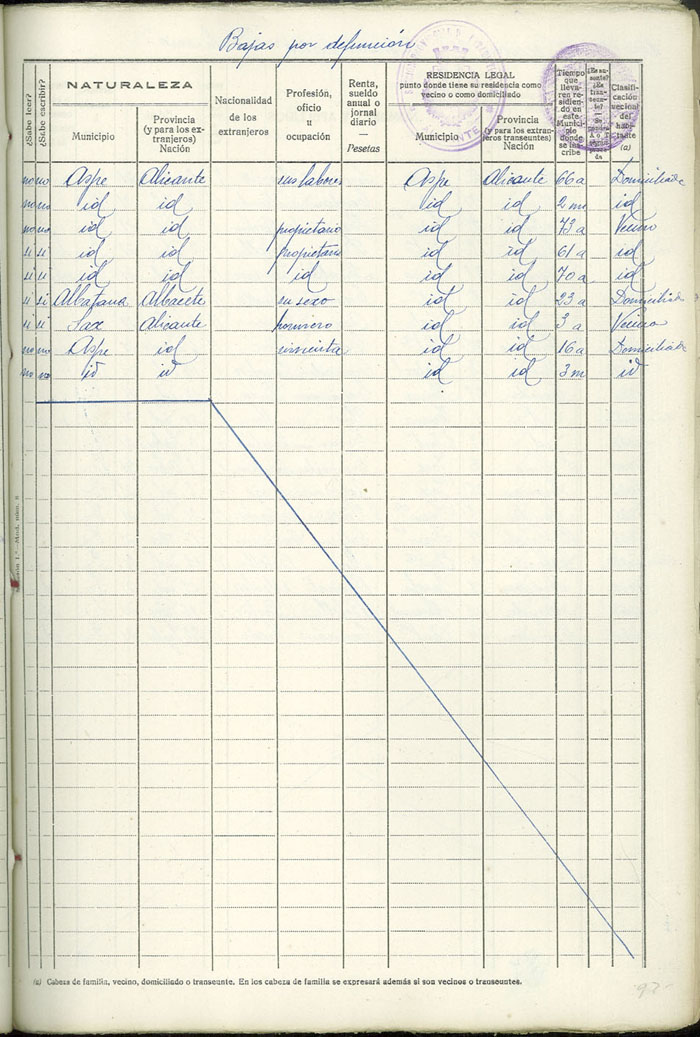 Bajas por defunción
¿Sabe leer? ¿Sabe escribir? NATURALEZA Nacionalidad de los extranjeros Profesión, oficio u ocupación Renta, sueldo anual o jornal diario — Pesetas RESIDENCIA LEGAL punto donde tiene su residencia como vecino o como domiciliado Tiempo que lleva- ren re- sidien- do en este Munici- pio donde se ins- cribe Clasifi- cación vecinal del habi- tante (a)
Municipio Provincia (y para los ex- tranjeros) Nación Municipio Provincia (y para los extran- jeros transeuntes) Nación
no no Aspe Alicante sus labores Aspe Alicante 66 a Domiciliada
no no id id id id 2 m id
no no id id propietario id id 73 a Vecino
si si id id propietario id id 61 a id
si si id id id id id 70 a id
si si Albatana Albacete su sexo id id 23 a Domiciliada
si si Sax Alicante id id 3 a Vecino
no no Aspe id id id 16 a Domiciliada
no no id id id id 3 m id
(a) Cabeza de familia, vecino, domiciliado o transeunte. En los cabeza de familia se expresará además si son vecinos o transeuntes.